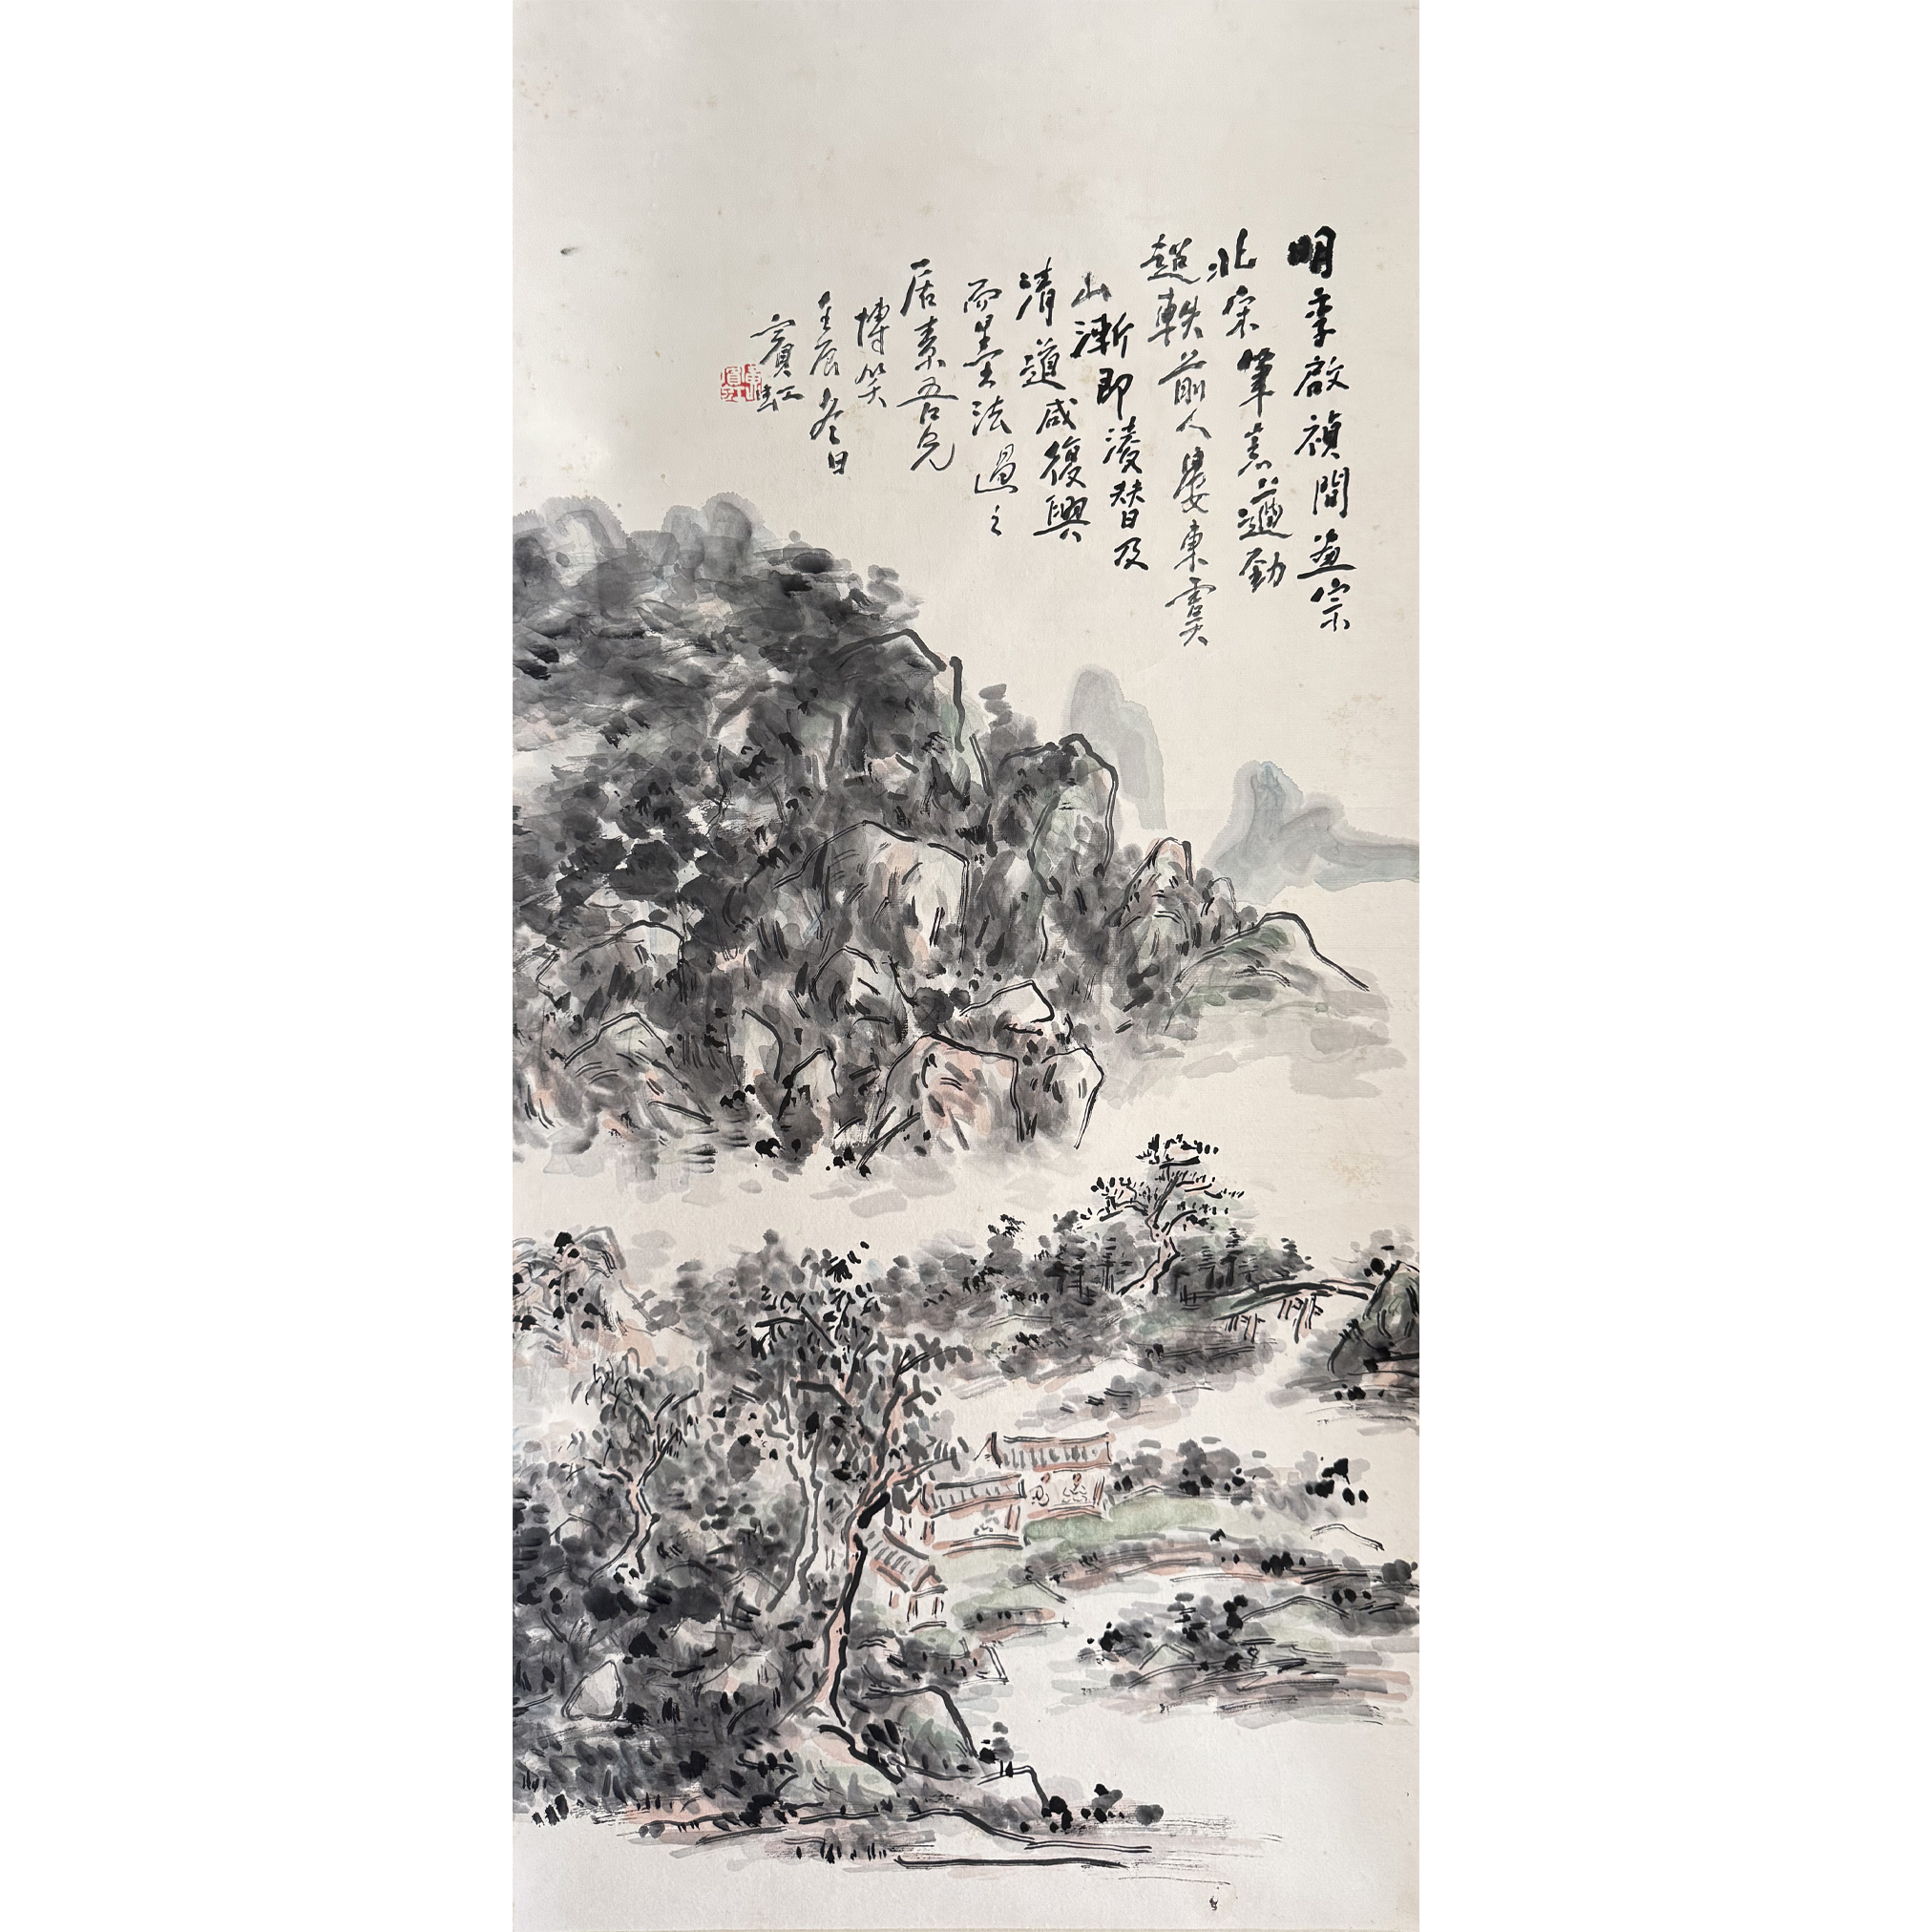 明季啟禎間畫宗
北宋筆意遒勁
超軼前人婁東虞
山漸即淩替及
清道咸復興
而墨法過之
居素吾兄
博笑
壬辰冬日
賓虹
黃賓虹